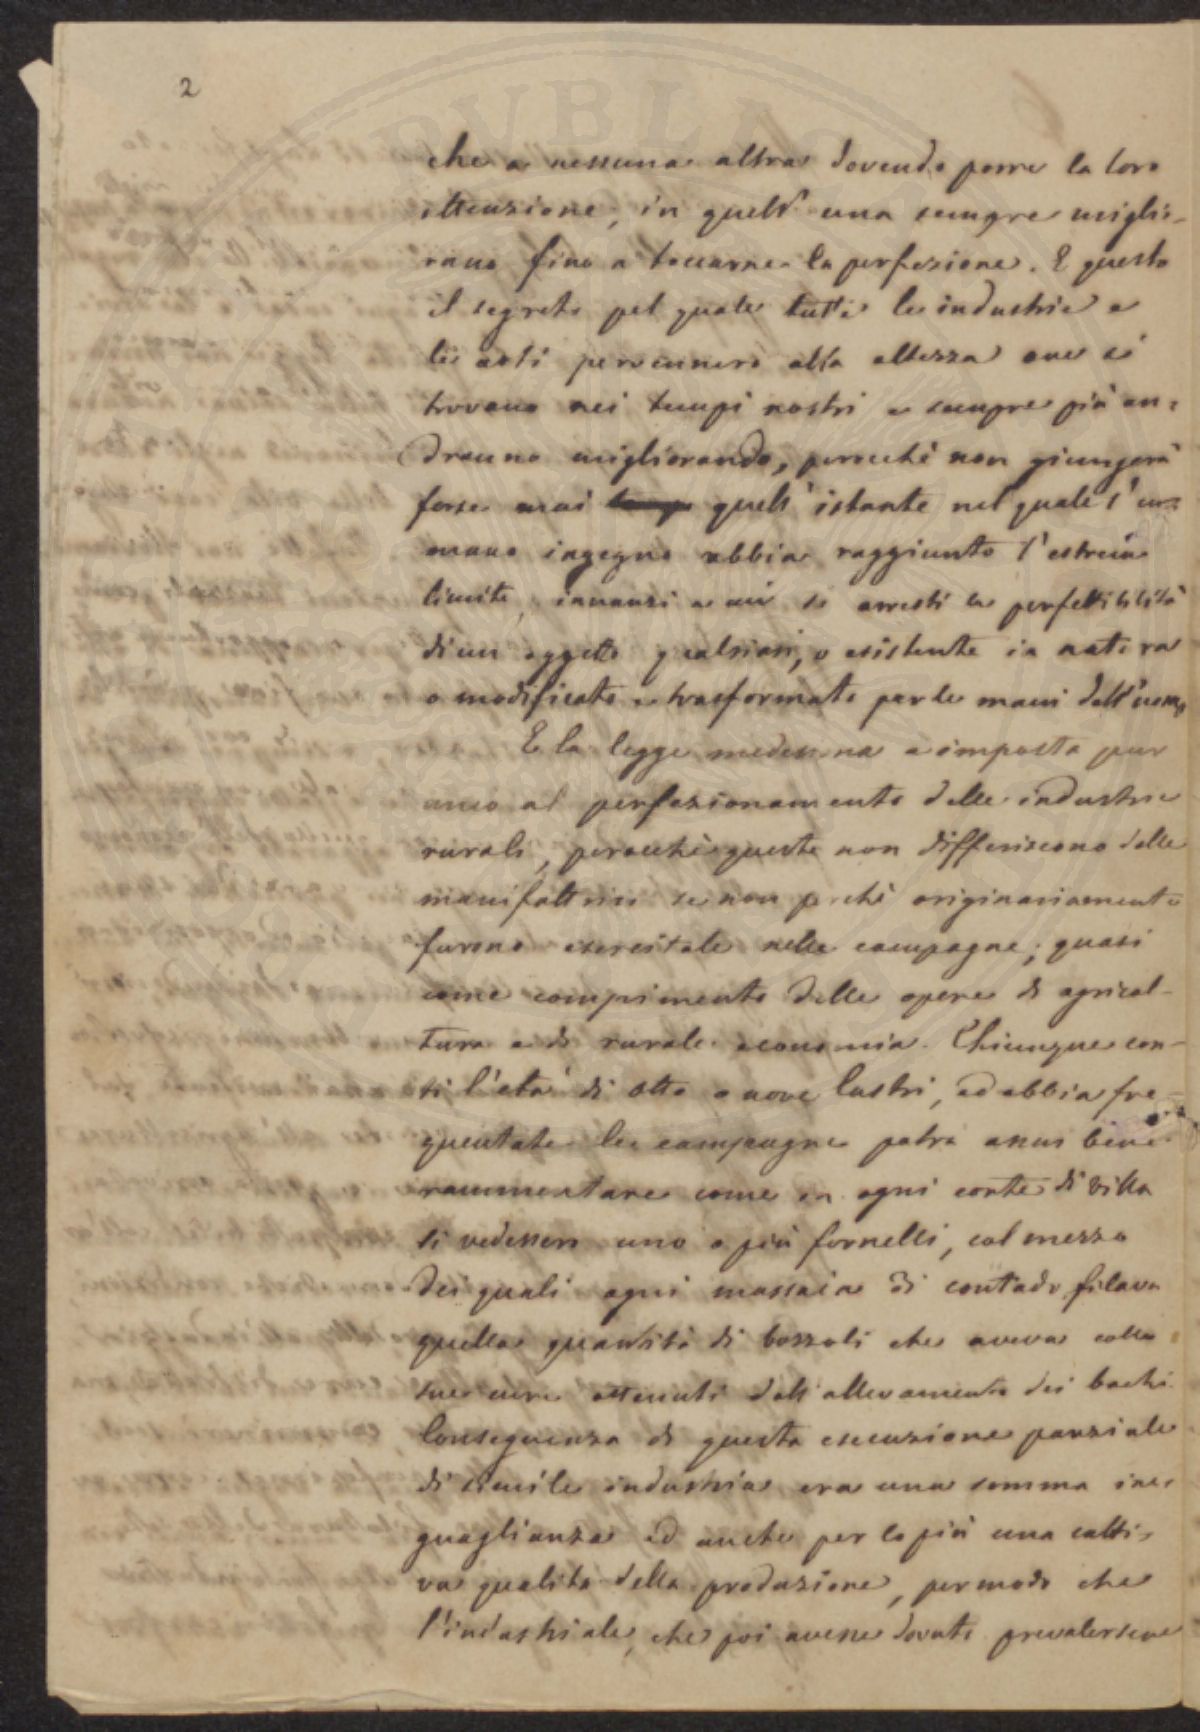 2
che a nessuna altra dovendo porre la loro
attenzione, in quell' una sempre miglio-
rano fino a toccarne la perfezione. È questo
il segreto pel quale tutte le industrie e
le arti pervennero alla altezza ove si
trovano nei tempi nostri e sempre più an-
dranno migliorando, perocchè non giungerà
forse mai quell' istante nel quale l' u-
mano ingegno abbia raggiunto l'estremo
limite, innanzi a cui si arresti la perfettibilità
di un oggetto qualsiasi, o esistente in natura
o modificato e trasformato per le mani dell'uomo.
E la legge medesima è imposta pur
anco al perfezionamento delle industrie
rurali, perocchè queste non differiscono dalle
manifattrici se non perchè originariamente
furono esercitate nelle campagne; quasi
come compimento delle opere di agricol-
tura e di rurale economia. Chiunque con-
ti l'età di otto o nove lustri, ed abbia fre-
quentate le campagne potrà assai bene
rammentare come in ogni corte di villa
si vedessero uno o più fornelli, col mezzo
dei quali ogni massaia di contado filava
quella quantità di bozzoli che aveva colle
sue cure ottenuti dall'allevamento dei bachi.
Conseguenza di questa esecuzione parziale
di simile industria era una somma ine-
guaglianza ed anche per lo più una catti-
va qualità della produzione, per modo che
l'industriale, che poi avesse dovuto prevalersene
PUBLIC